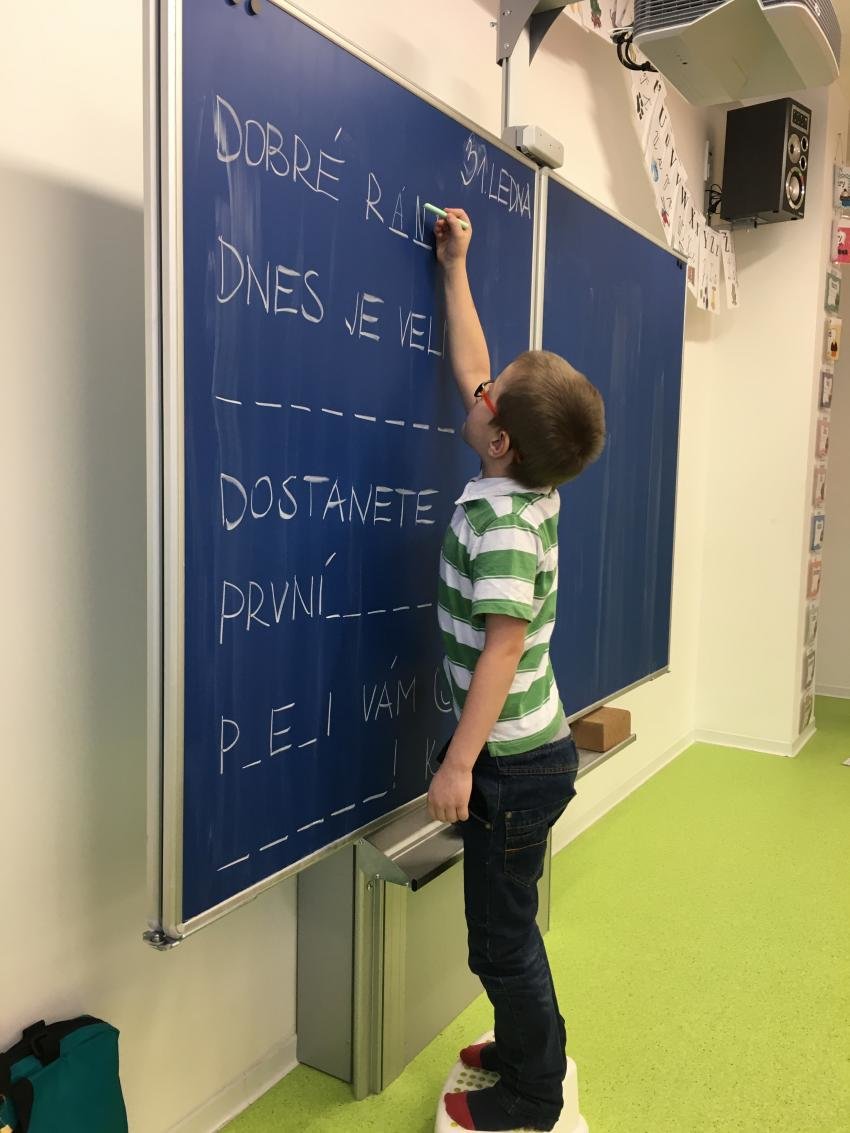 31. LEDNA
DOBRÉ RÁN
DNES JE VEL
_ _ _ _ _ _ _ _
DOSTANETE
PRVNÍ _ _ _ _
P_E_I VÁM
_ _ _ _ _ ! K